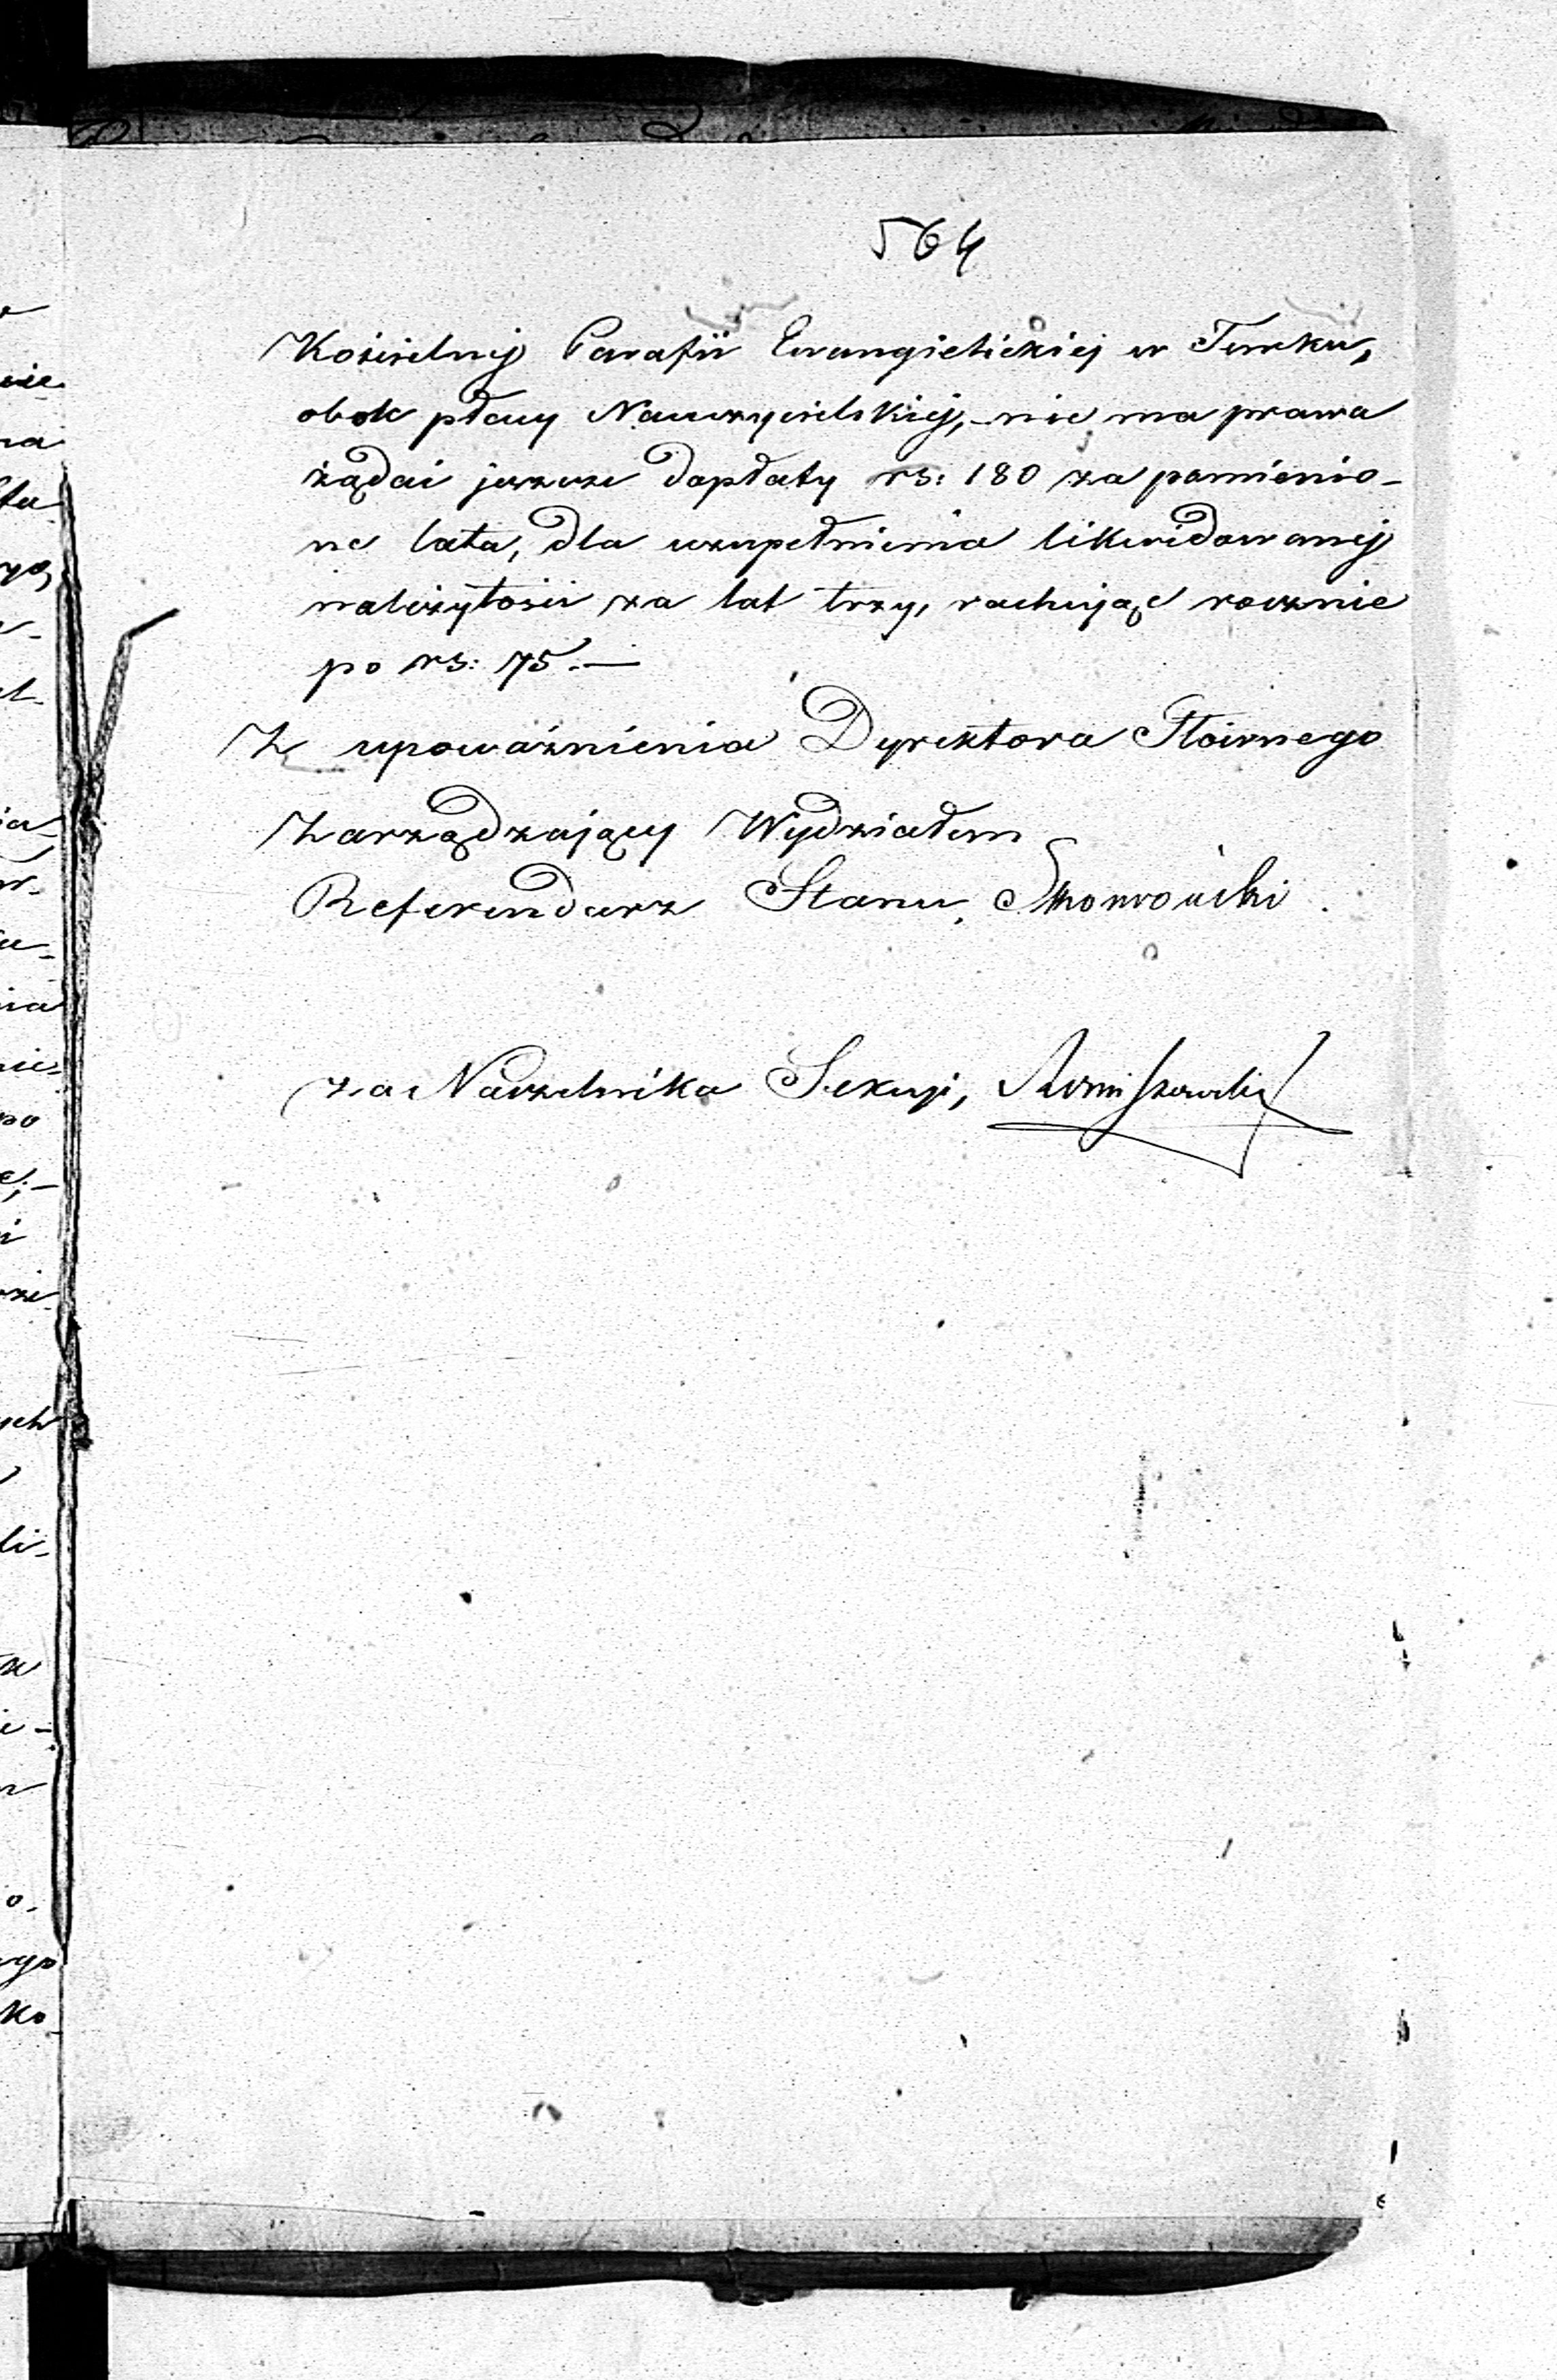 564
Kościelnej Parafii Ewangielickiej w Turku,
obok płacy Nauczycielskiej, nie ma prawa
żądać jeszcze dopłaty rs: 180 za pomienio-
ne lata, dla uzupełnienia likwidowanej
należytości za lat trzy, rachując rocznie
po rs: 75.—
Z upoważnienia Dyrektora Głównego
Zarządzający Wydziałem
Referendarz Stanu,
za Naczelnika Sekcyi,